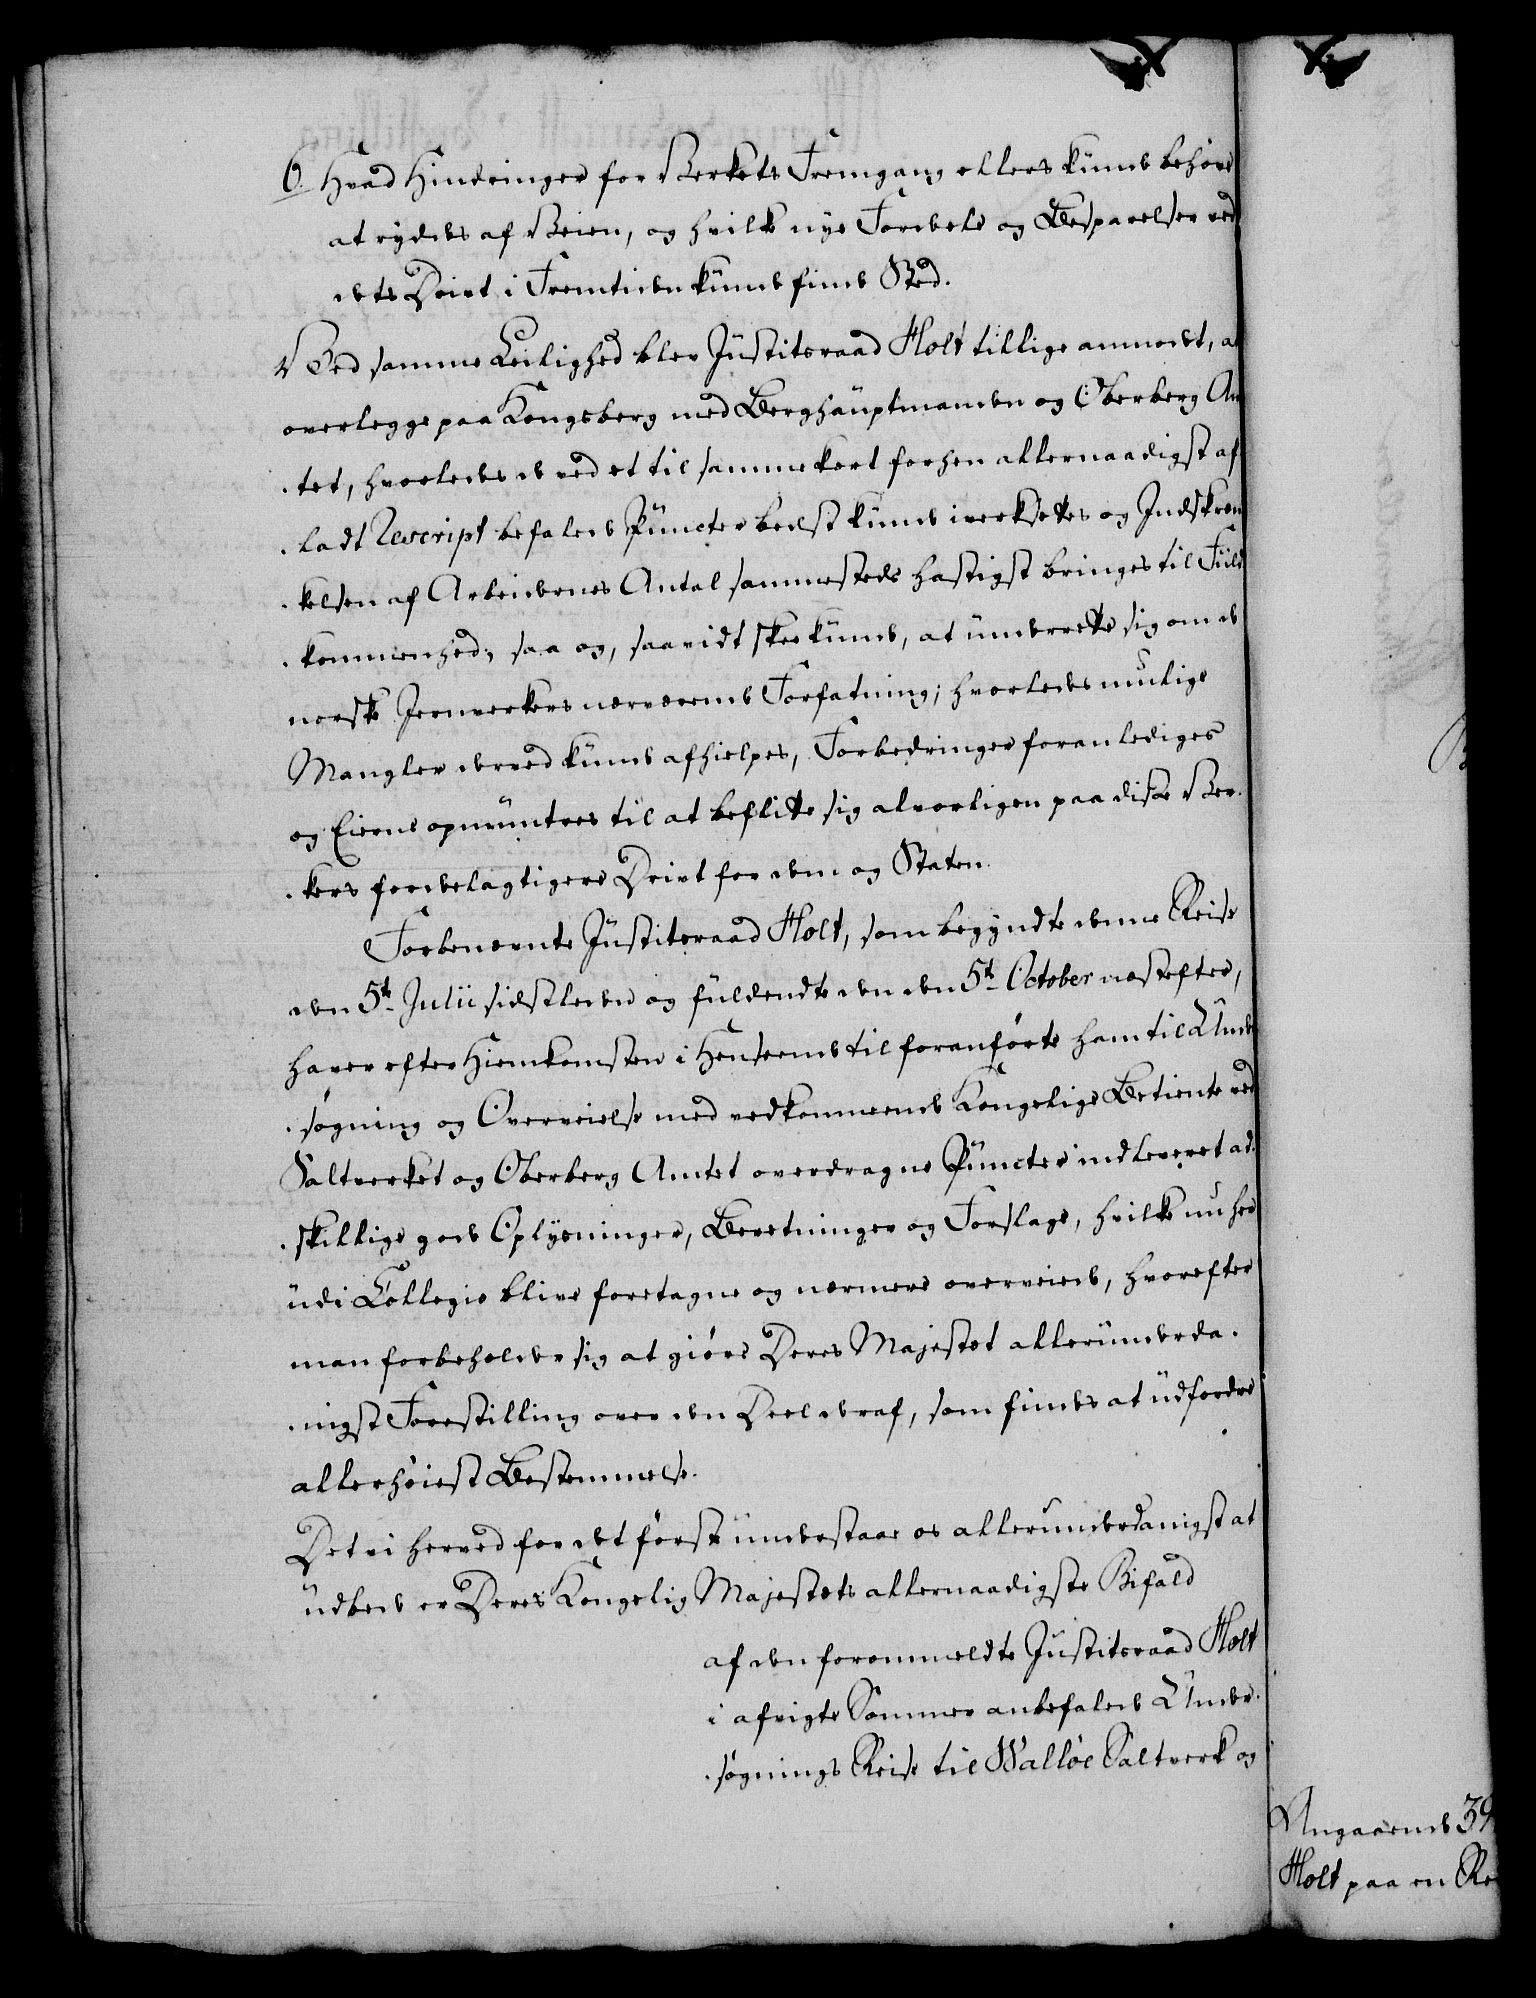 6. Hvad Hindringer for Verkets Fremgang ellers kunde behøve
at ryddes af Veien, og hvilke nye Fordeele og Besparelser ved
dets Drivt i Fremtiden kunde finde Sted.
Ved samme Leilighed blev Justitsraad Holt tillige anmodet, at
overlegge paa Kongsberg med Berghauptmanden og Oberberg Am
tet, hvorledes de ved et til sammekort forhen allernaadigst af
ladt Rescript befalede Puncter bedst kunde iverksettes og Indskren
kelsen af Arbeidernes Antal sammesteds hastigst bringes til Fuld
kommenhed; saa og, saavidt skee kunde, at underrette sig om de
norske Jernverkers nærværende Forfatning; hvorledes mulige
Mangler derved kunde afhielpes, Forbedringer foranlediges
og Eierne opmuntres til at beflitte sig alvorligen paa disse Ver-
kers fordeelagtigere Drivt for dem og Staten.
Forbenævnte Justitsraad Holt, som begyndte denne Reise
den 5t. Julii sidstleden og fuldendte den den 5t. October næstefter,
haver efter Hiemkomsten i Henseende til foranførte ham til Under
søgning og Overveielse med vedkommende Kongelige Betiente ved
Saltverket og Oberberg Amtet overdragne Puncter indleveret ad-
skillige gode Oplysninger, Beretninger og Forslage, hvilke nu her
udi Collegio blive foretagne og nærmere overveiede, hvorefter
man forbeholder sig at giøre Deres Majestæt allerunderda-
nigst Forestilling over den Deel deraf, som findes at udfordre
allerhøiest Bestemmelse.
Det vi herved for det første understaae os allerunderdanigst at
udbede er Deres Kongelig Majestæts allernaadigste Bifald
af den forommeldte Justitsraad Holt
i afvigte Sommer anbefalede Under-
søgnings Reise til Walløe Saltverk og
Angaaende
Holt paa en